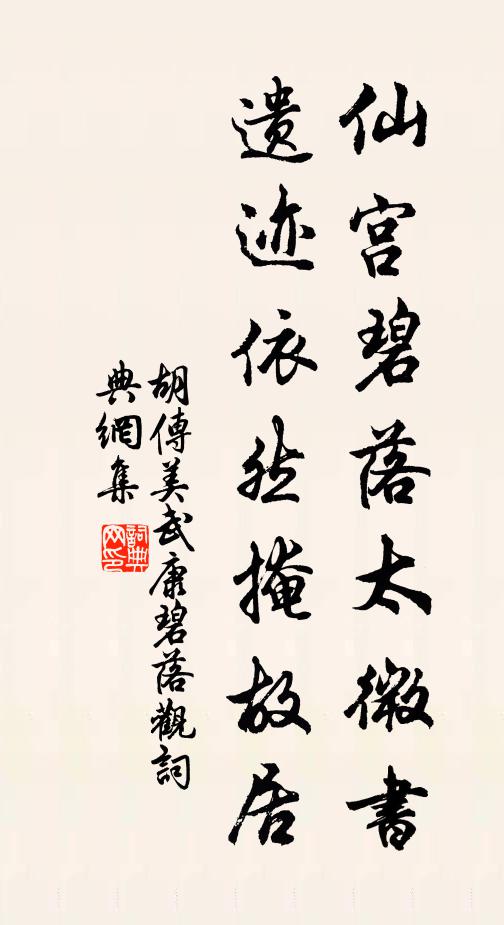 仙宫碧落太微書
遗迹依然掩故居
胡傳美武康碧落觀詞
典網集
詞典网印